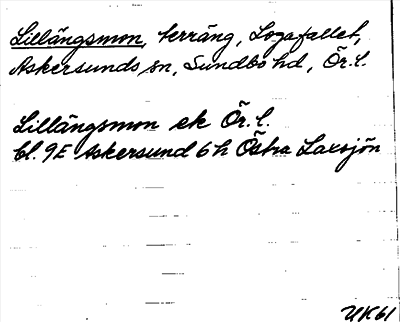 Lillängsmon, terräng, Logafallet,
Askersunds sn, Sundbo hd, Ör.l.
Lillängsmon ek Ör.l.
bl. 9E Askersund 6h Östra Laxsjön
UK61